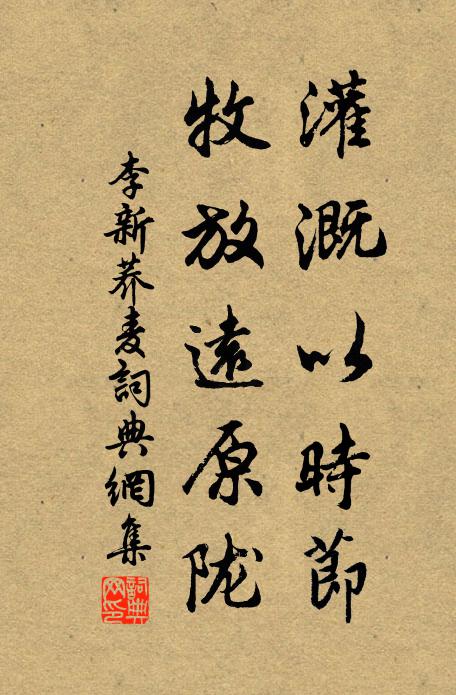 灌溉以時節
牧放遠原陇
李新荞麦詞典網集
詞典网印